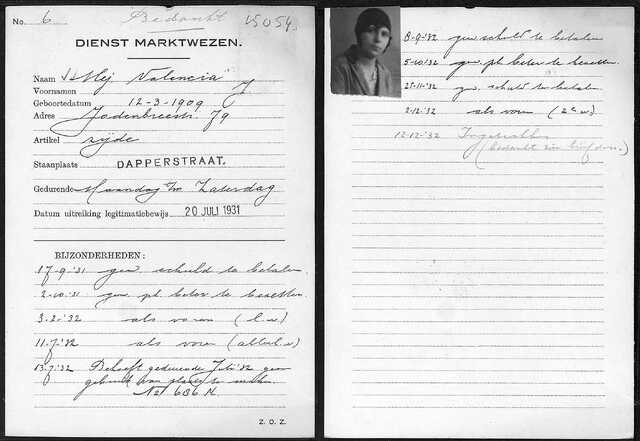 No. 6 Bedankt 15054.
DIENST MARKTWEZEN.
Naam Mij Valencia"
Voornamen
Geboortedatum 12-3-1909
Adres Jodenbreestr. 79
Artikel zijde
Staanplaats DAPPERSTRAAT.
Gedurende Maandag t/m Zaterdag
Datum uitreiking legitimatiebewijs 20 JULI 1931
BIJZONDERHEDEN:
17-9-'31 gew. schuld te betalen
2-10-'31 gew. pl. beter te bezetten
3-2-'32 als voren (l.w)
11-7-'32 als voren (allerl.w)
13-7-'32 Behoeft gedurende Juli '32 geen
gebruik van plaats te maken.
No 686 M.
Z. O. Z.
8-9-'32 gew. schuld te betalen
5-10-'32 gew. pl. beter te bezetten.
25-11-'32 gew. schuld te betalen
2-12-'32 als voren (2e w)
12-12-'32 Ingetrokken
(bedankt